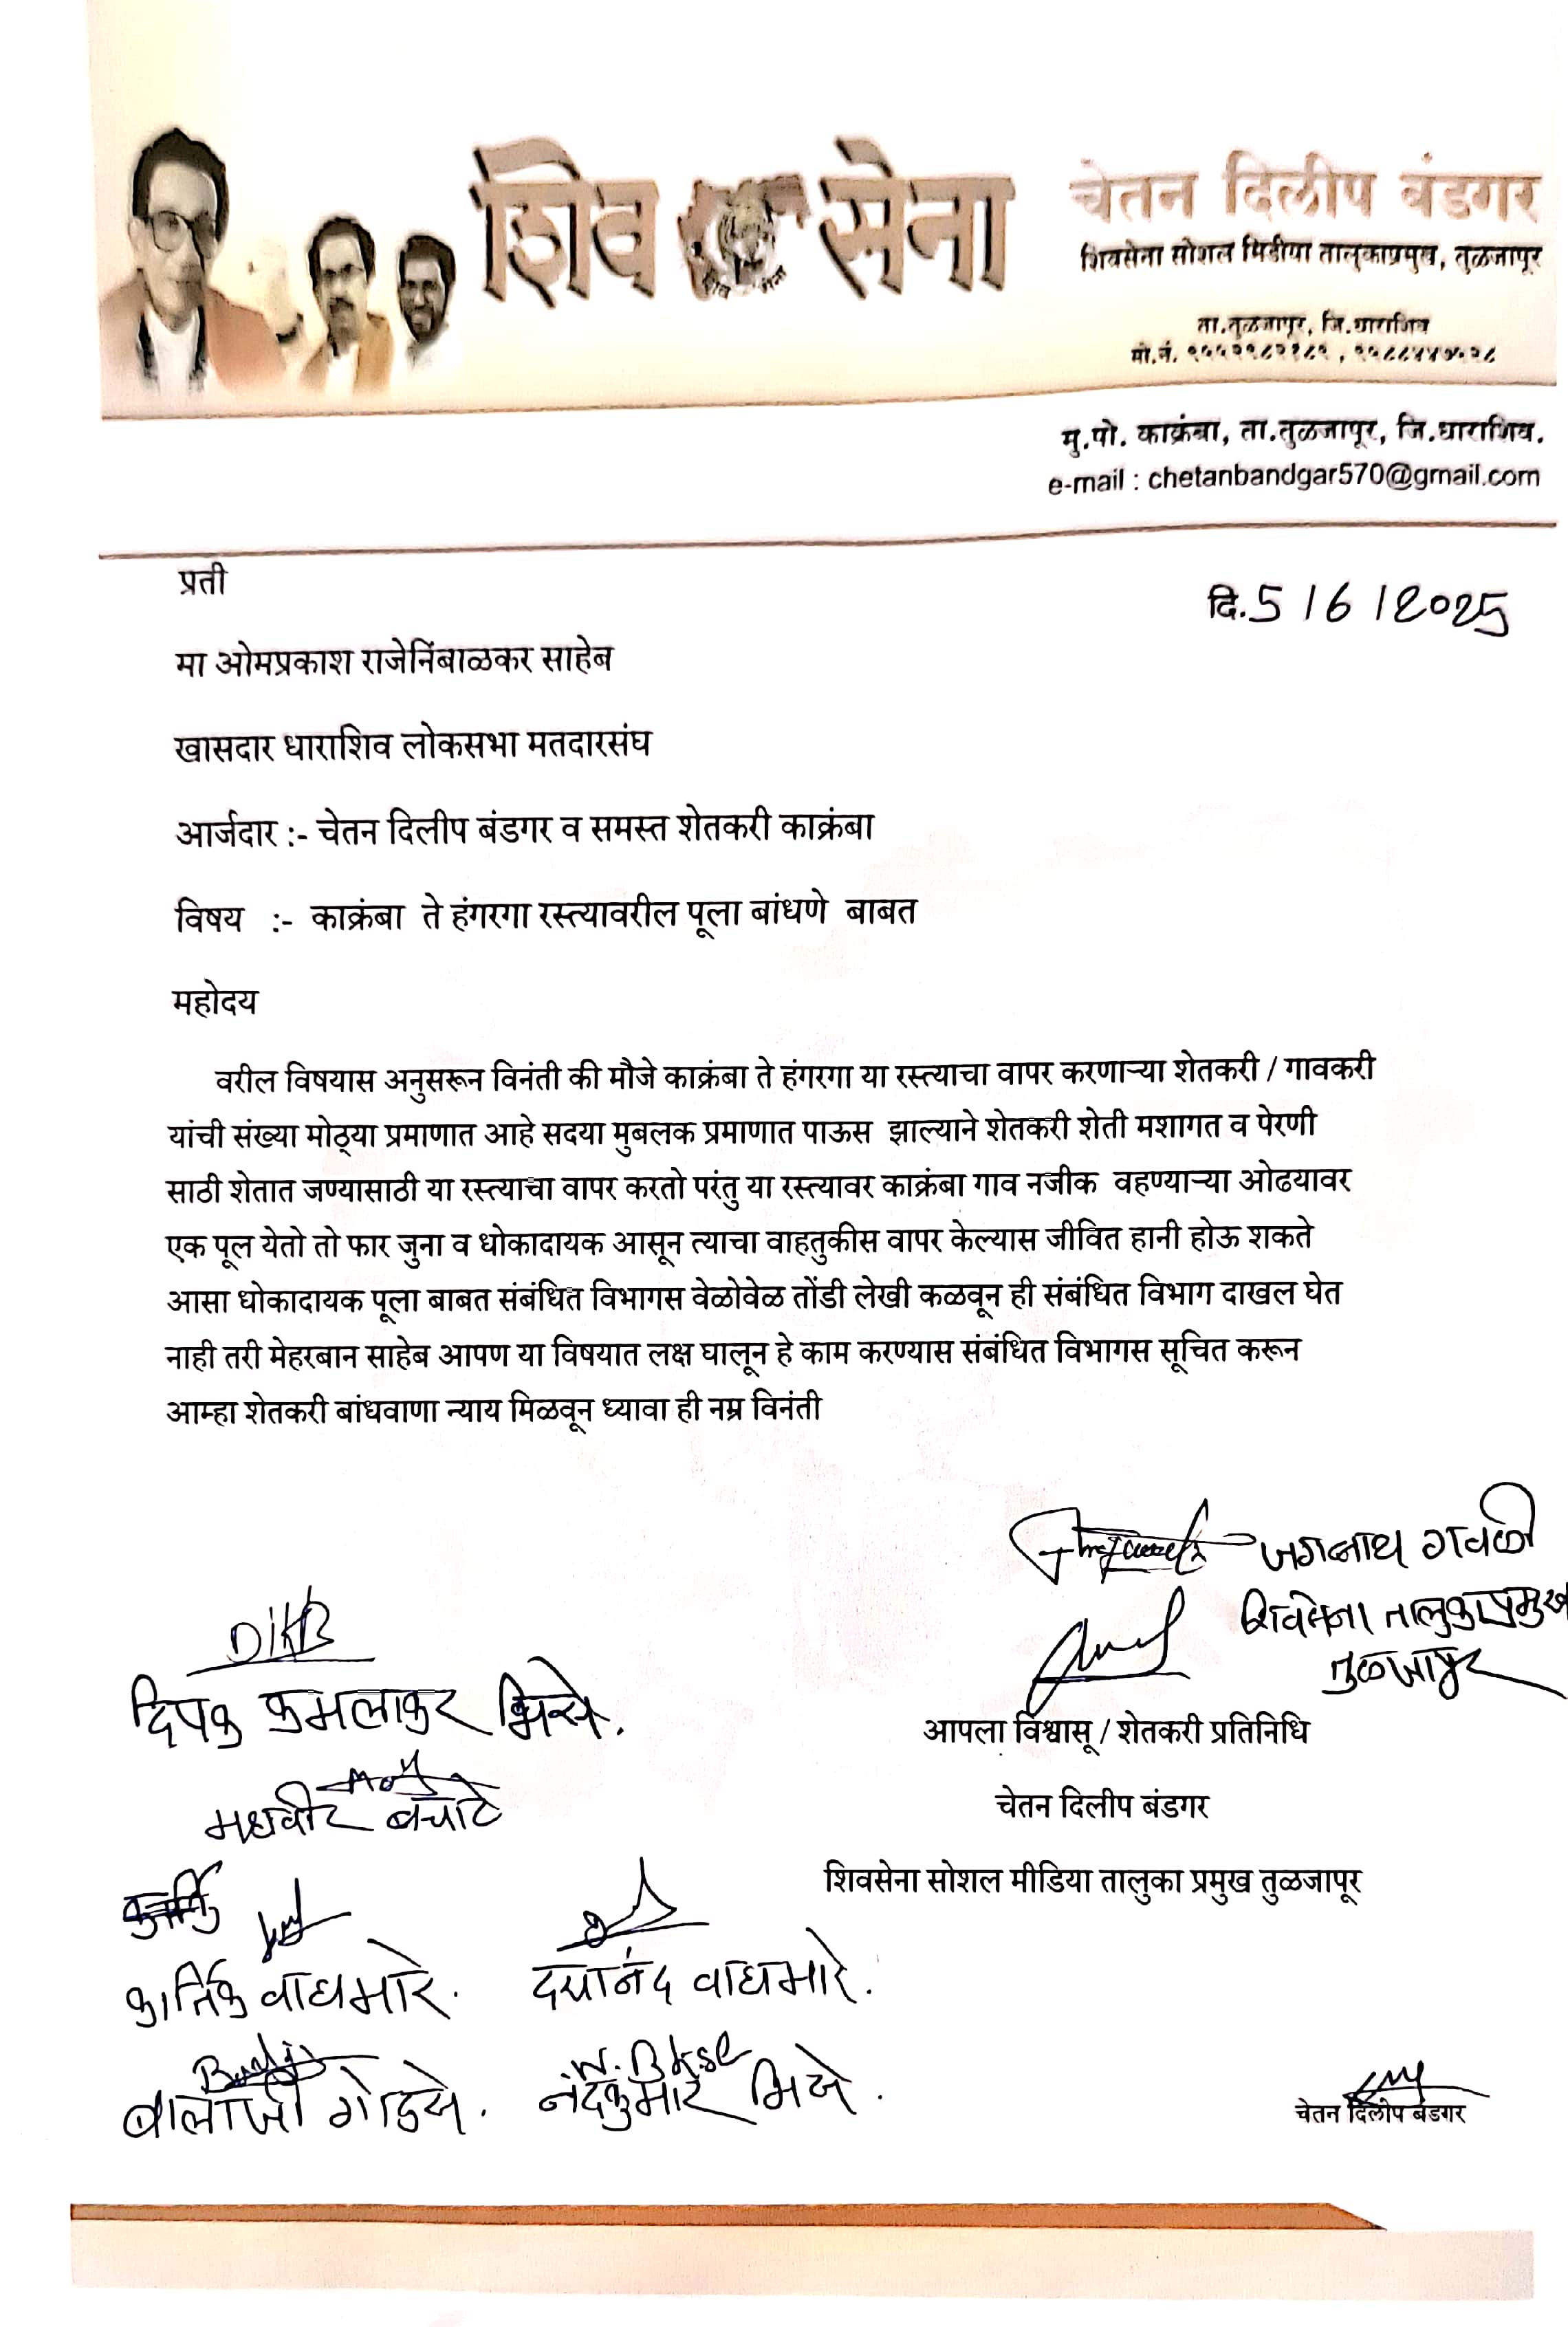 शिव सेना
चेतन दिलीप बंडगर
शिवसेना सोशल मिडीया तालुकाप्रमुख, तुळजापूर
ता.तुळजापूर, जि.धाराशिव
मो.नं.
मु.पो. काक्रंबा, ता.तुळजापूर, जि.धाराशिव.
e-mail : chetanbandgar570@gmail.com
प्रती
दि. 5 / 6 / 2025
मा ओमप्रकाश राजेनिंबाळकर साहेब
खासदार धाराशिव लोकसभा मतदारसंघ
आर्जदार :- चेतन दिलीप बंडगर व समस्त शेतकरी काक्रंबा
विषय :- काक्रंबा ते हंगरगा रस्त्यावरील पूला बांधणे बाबत
महोदय
वरील विषयास अनुसरून विनंती की मौजे काक्रंबा ते हंगरगा या रस्त्याचा वापर करणाऱ्या शेतकरी / गावकरी
यांची संख्या मोठ्या प्रमाणात आहे सदया मुबलक प्रमाणात पाऊस झाल्याने शेतकरी शेती मशागत व पेरणी
साठी शेतात जण्यासाठी या रस्त्याचा वापर करतो परंतु या रस्त्यावर काक्रंबा गाव नजीक वहण्याऱ्या ओढयावर
एक पूल येतो तो फार जुना व धोकादायक आसून त्याचा वाहतुकीस वापर केल्यास जीवित हानी होऊ शकते
आसा धोकादायक पूला बाबत संबंधित विभागस वेळोवेळ तोंडी लेखी कळवून ही संबंधित विभाग दाखल घेत
नाही तरी मेहरबान साहेब आपण या विषयात लक्ष घालून हे काम करण्यास संबंधित विभागस सूचित करून
आम्हा शेतकरी बांधवाणा न्याय मिळवून ध्यावा ही नम्र विनंती
जगन्नाथ गवळी
शिवसेना तालुकाप्रमुख
तुळजापूर
दिपक कमलाकर भिसे.
आपला विश्वासू / शेतकरी प्रतिनिधि
चेतन दिलीप बंडगर
शिवसेना सोशल मीडिया तालुका प्रमुख तुळजापूर
कार्तिक वाघमारे. दयानंद वाघमारे.
बालाजी नंदकुमार भिसे.
चेतन दिलीप बंडगर